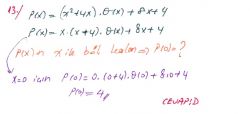 13/ P(x) = (x²+4x).Q(x)+8x+4
P(x) = x.(x+4).Q(x)+8x+4
P(x)'in x ile böl. kalan ⇒ P(0) = ?
x=0 için P(0) = 0.(0+4).Q(0)+8.0+4
P(0) = 4
CEVAP D